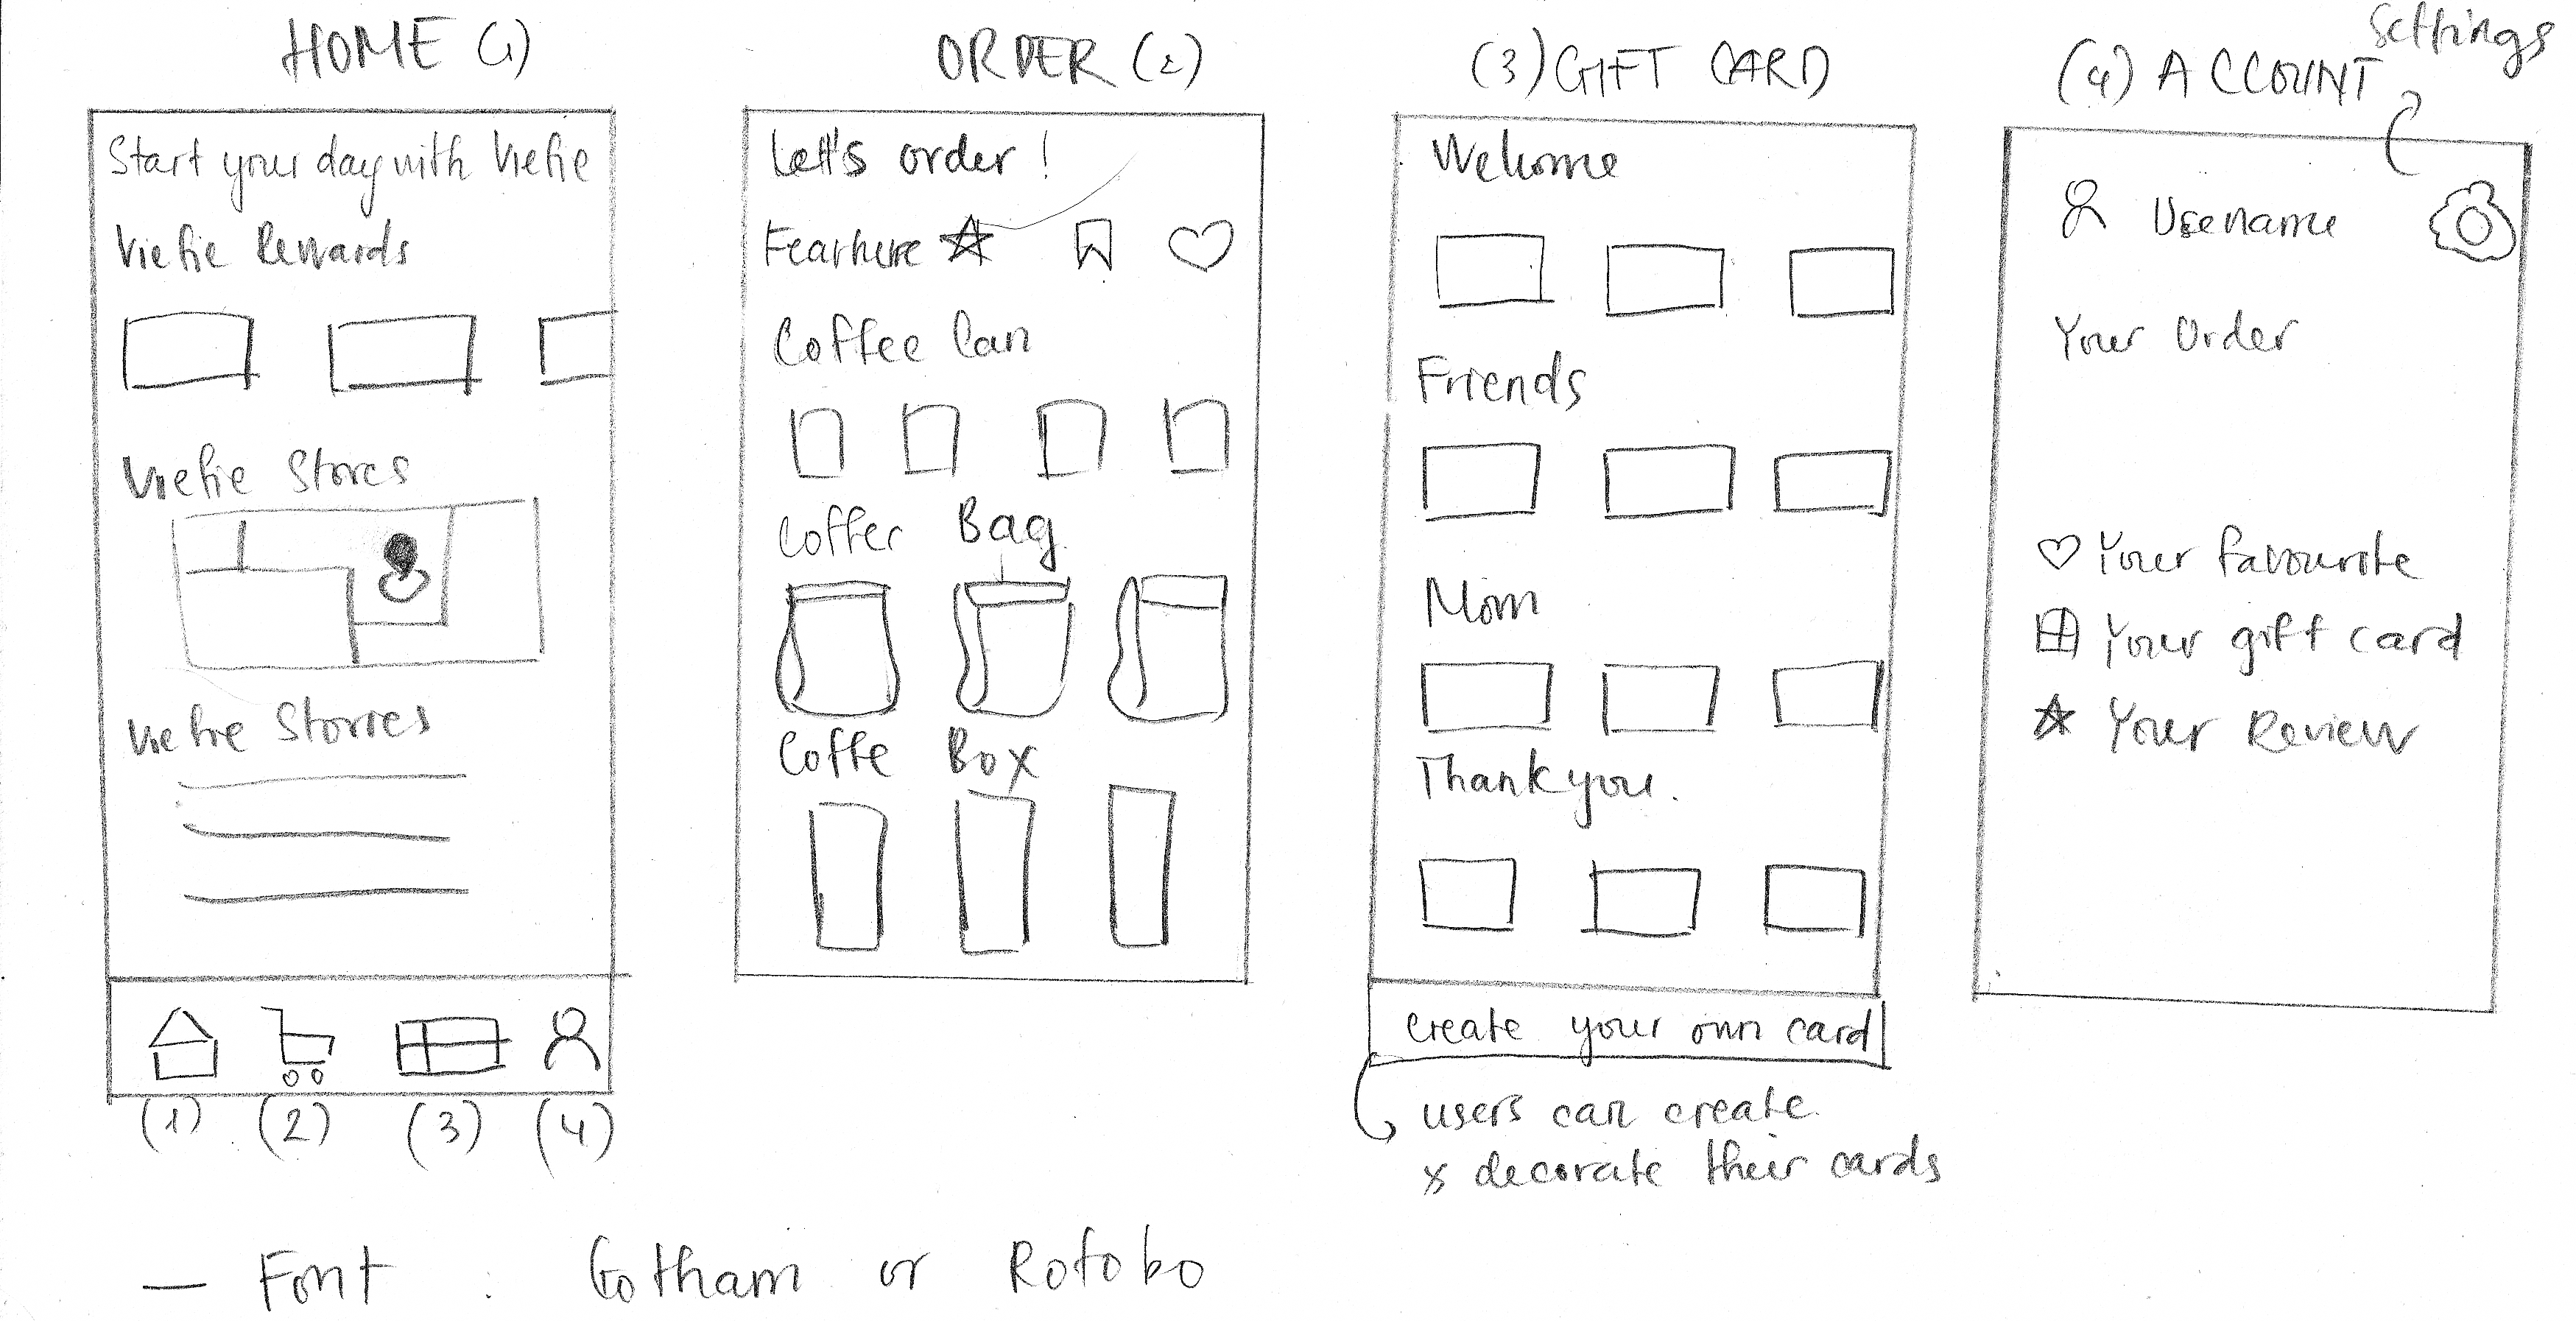 HOME (1)
Start your day with Viefie
Viefie Rewards
Viefie Stores
Viefie Stories
(1) (2) (3) (4)
ORDER (2)
Let's order !
Fearhure
Coffee Can
Coffer Bag
Coffe Box
(3) GIFT CARD
Welcome
Friends
Mom
Thank you.
Create your own card
users can create
& decorate their cards
Settings
(4) ACCOUNT
Usename
Your Order
Your favourite
Your gift card
Your Review
— Font : Gotham or Rotobo